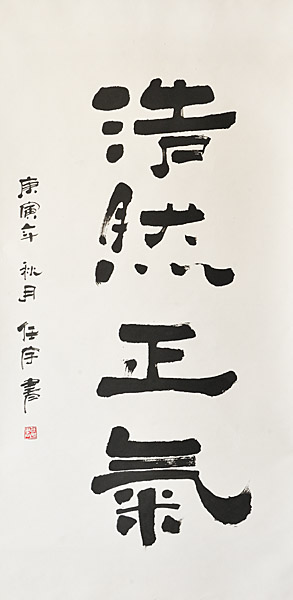 浩然正氣
庚寅年 秋月 任宇 書